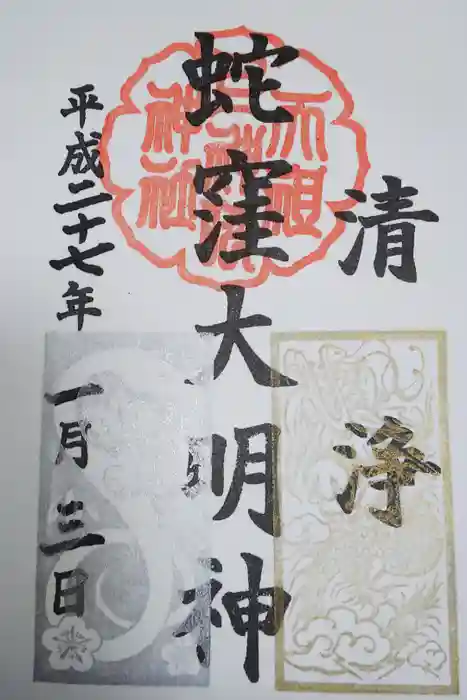 清浄
蛇窪大明神
平成二十七年 一月三日